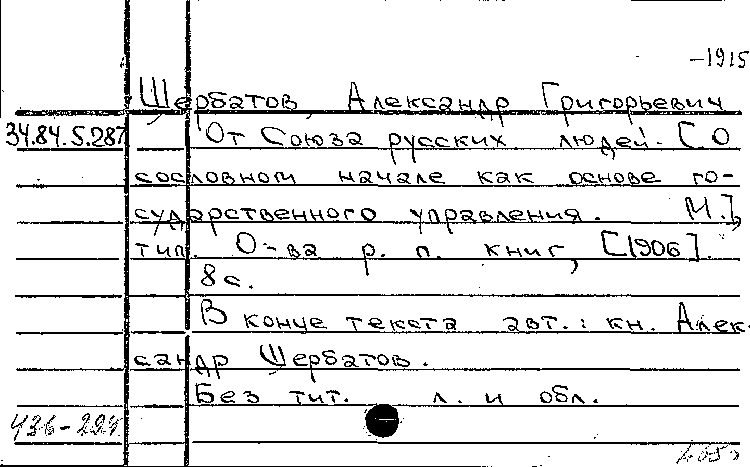 -1915
Щербатов, Александр Григорьевич
34.84.5.287 От Союза русских людей. [О
сословном начале как основе го-
сударственного управления. М.],
тип. О-ва р. п. книг, [1906].
8 с.
В конце текста авт.: кн. Алек-
сандр Щербатов.
Без тит. л. и обл.
436-224